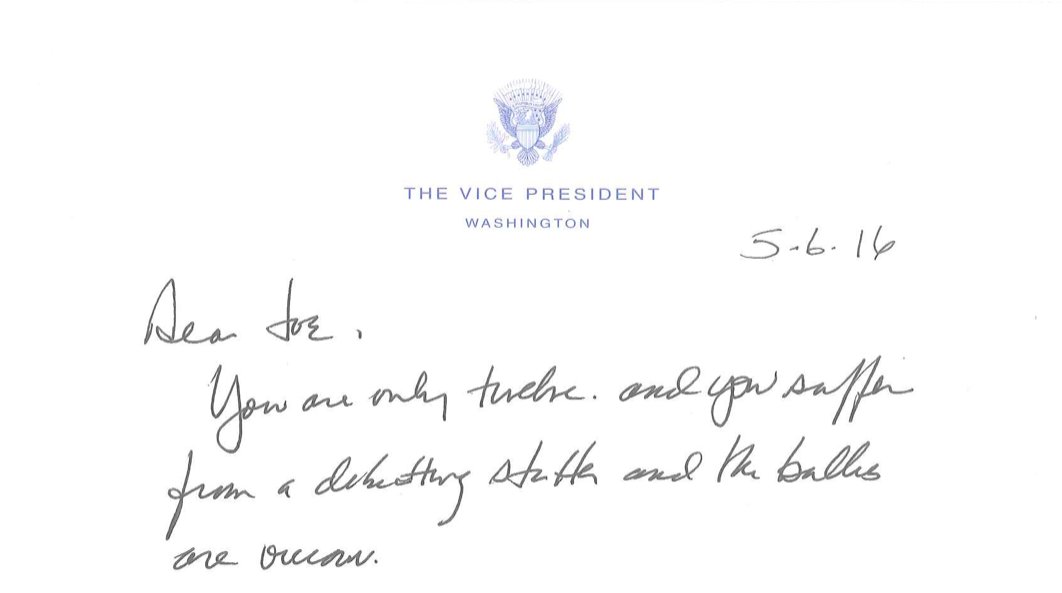 THE VICE PRESIDENT
WASHINGTON
5-6-16
Dear Joe.
You are only twelve. and you suffer
from a debilitating stutter and the bullies
are